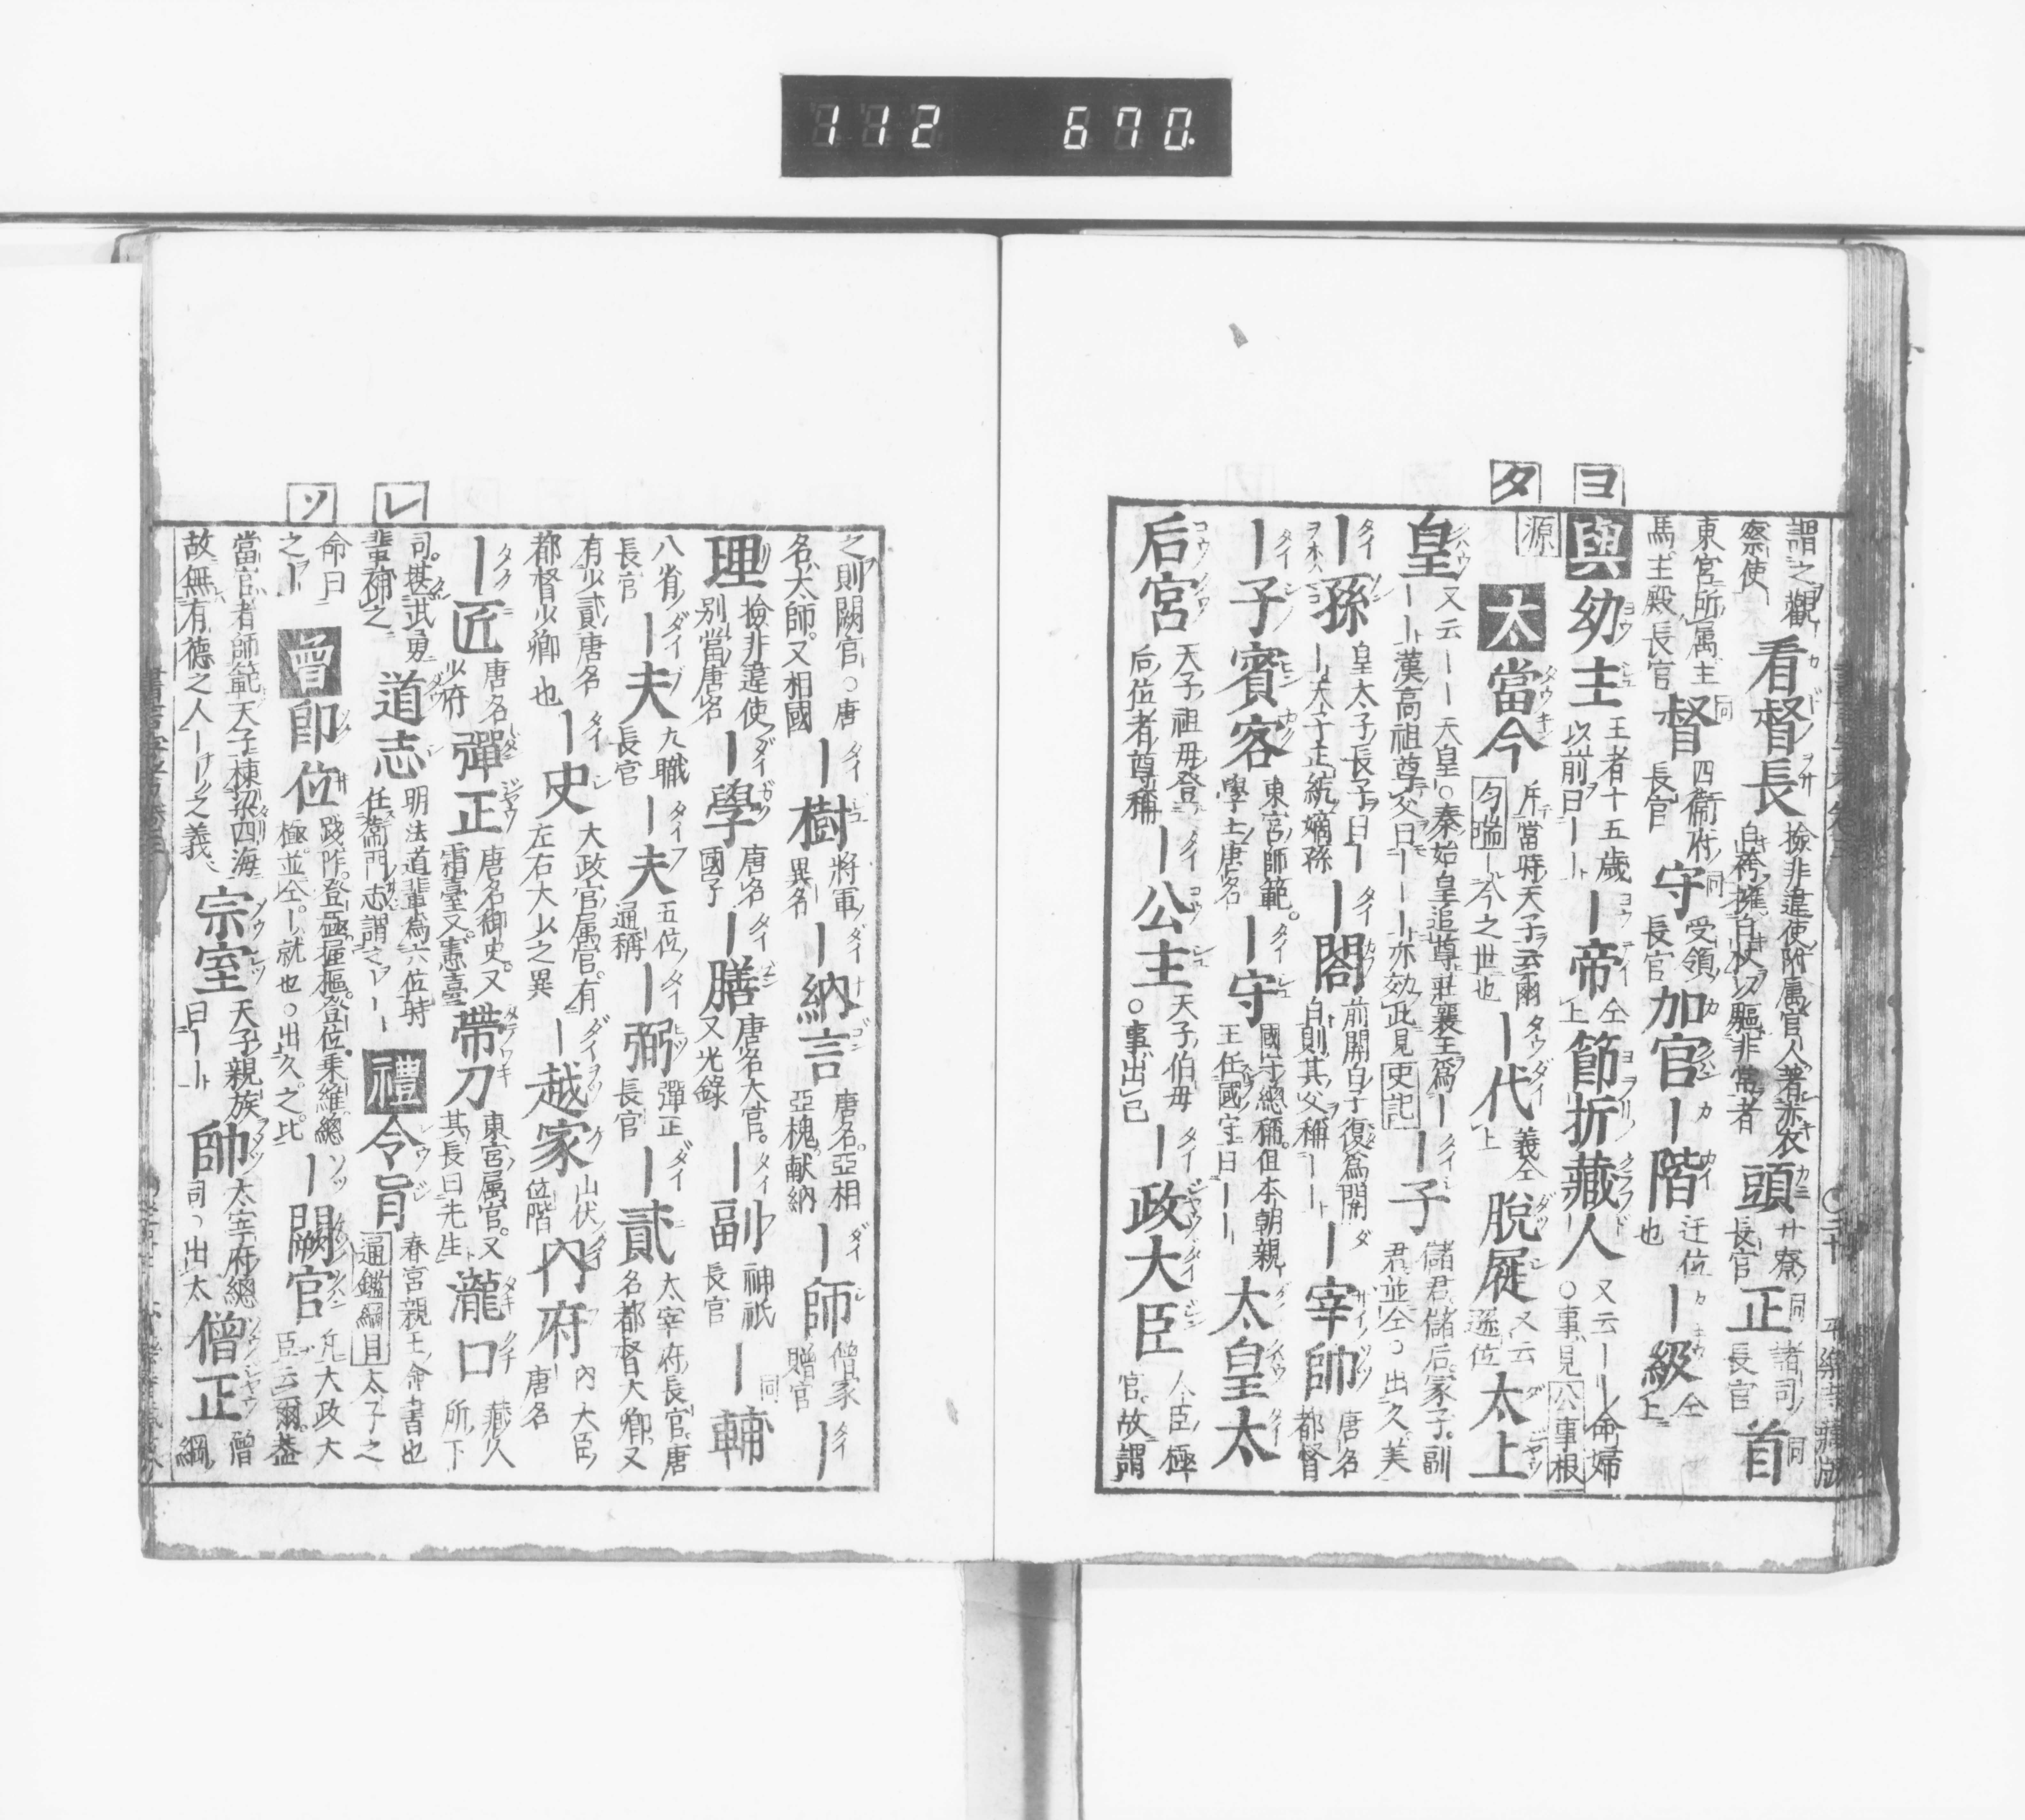 112 670.
ヨ
タ
謂之觀察使 看督長 撿非違使附属官人著赤衣白袴擁白杖以驅非常者 頭 廿寮長官 正 同 諸司長官 首 同
東宮所属主馬主殿長官 督 同 四衛府長官 守 同 受領長官 加官 ー階 迁位也 ー級 仝上
與 幼主 王者十五歳以前曰ーー ー帝 仝上 節折藏人 又云ーー命婦○事見公事根
源 太 當今 斥當時天子云爾匀瑞ー今之世也 ー代 義仝上 脫屣 又云遜位 太上
皇 又云ーー天皇○秦始皇追尊莊襄王爲ーーー漢高祖尊父曰ーーー亦効此見史記 ー子 儲君儲后冢子副君並仝○出久美
ー孫 皇太子長子曰ーー天子正統嫡孫 ー閤 前關白子復爲關白則其父稱ーー ー宰帥 唐名都督
ー子賓客 東宮師範學士唐名 ー守 國守總稱但本朝親王任國守曰ーー 太皇太
后宮 天子祖母登后位者尊稱 ー公主 天子伯母○事出己 ー政大臣 人臣極官故謂
レ
ソ
之則闕官○唐名太師又相國 ー樹 將軍異名 ー納言 唐名亞相亞槐献納 ー師 僧家贈官 ー
理 撿非違使別當唐名 ー學 唐名國子 ー膳 唐名大官又光錄 ー副 神祇長官 ー輔 同
八省長官 ー夫 九職長官 ー夫 五位通稱 ー弼 彈正長官 ー貳 太宰府長官唐名都督大卿又
有少貳唐名都督少卿也 ー史 大政官属官有左右大少之異 ー越家 山伏位階 內府 內大臣唐名
ー匠 唐名少府 彈正 唐名御史又霜臺又憲臺 帶刀 東宮属官又其長曰先生 瀧口 藏人所下
司堪武勇輩補之 道志 明法道輩爲六位時任衞門志謂之ーー 禮 令旨 春宮親王命書也通鑑綱目太子之
命曰之ー 曾 即位 踐祚登極握樞登位乗維總極並仝ー就也○出久之比 ー闕官 凡大政大臣云爾蓋
當官者師範天子棟梁四海故無有德之人ーー之義 宗室 天子親族曰ーー 帥 太宰府總司出太 僧正 僧綱